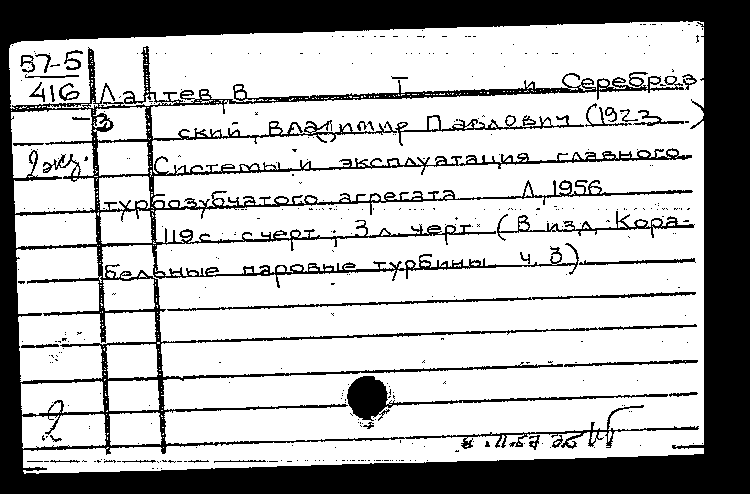 В7-5
416 Лаптев, В Т и Серебров-
-3
ский, Владимир Павлович (1923 )
2 экз. Системы и эксплуатация главного
турбозубчатого агрегата Л, 1956
119 с. с черт; 3 л. черт (В изд, Кора-
бельные паровые турбины ч. 3).
2